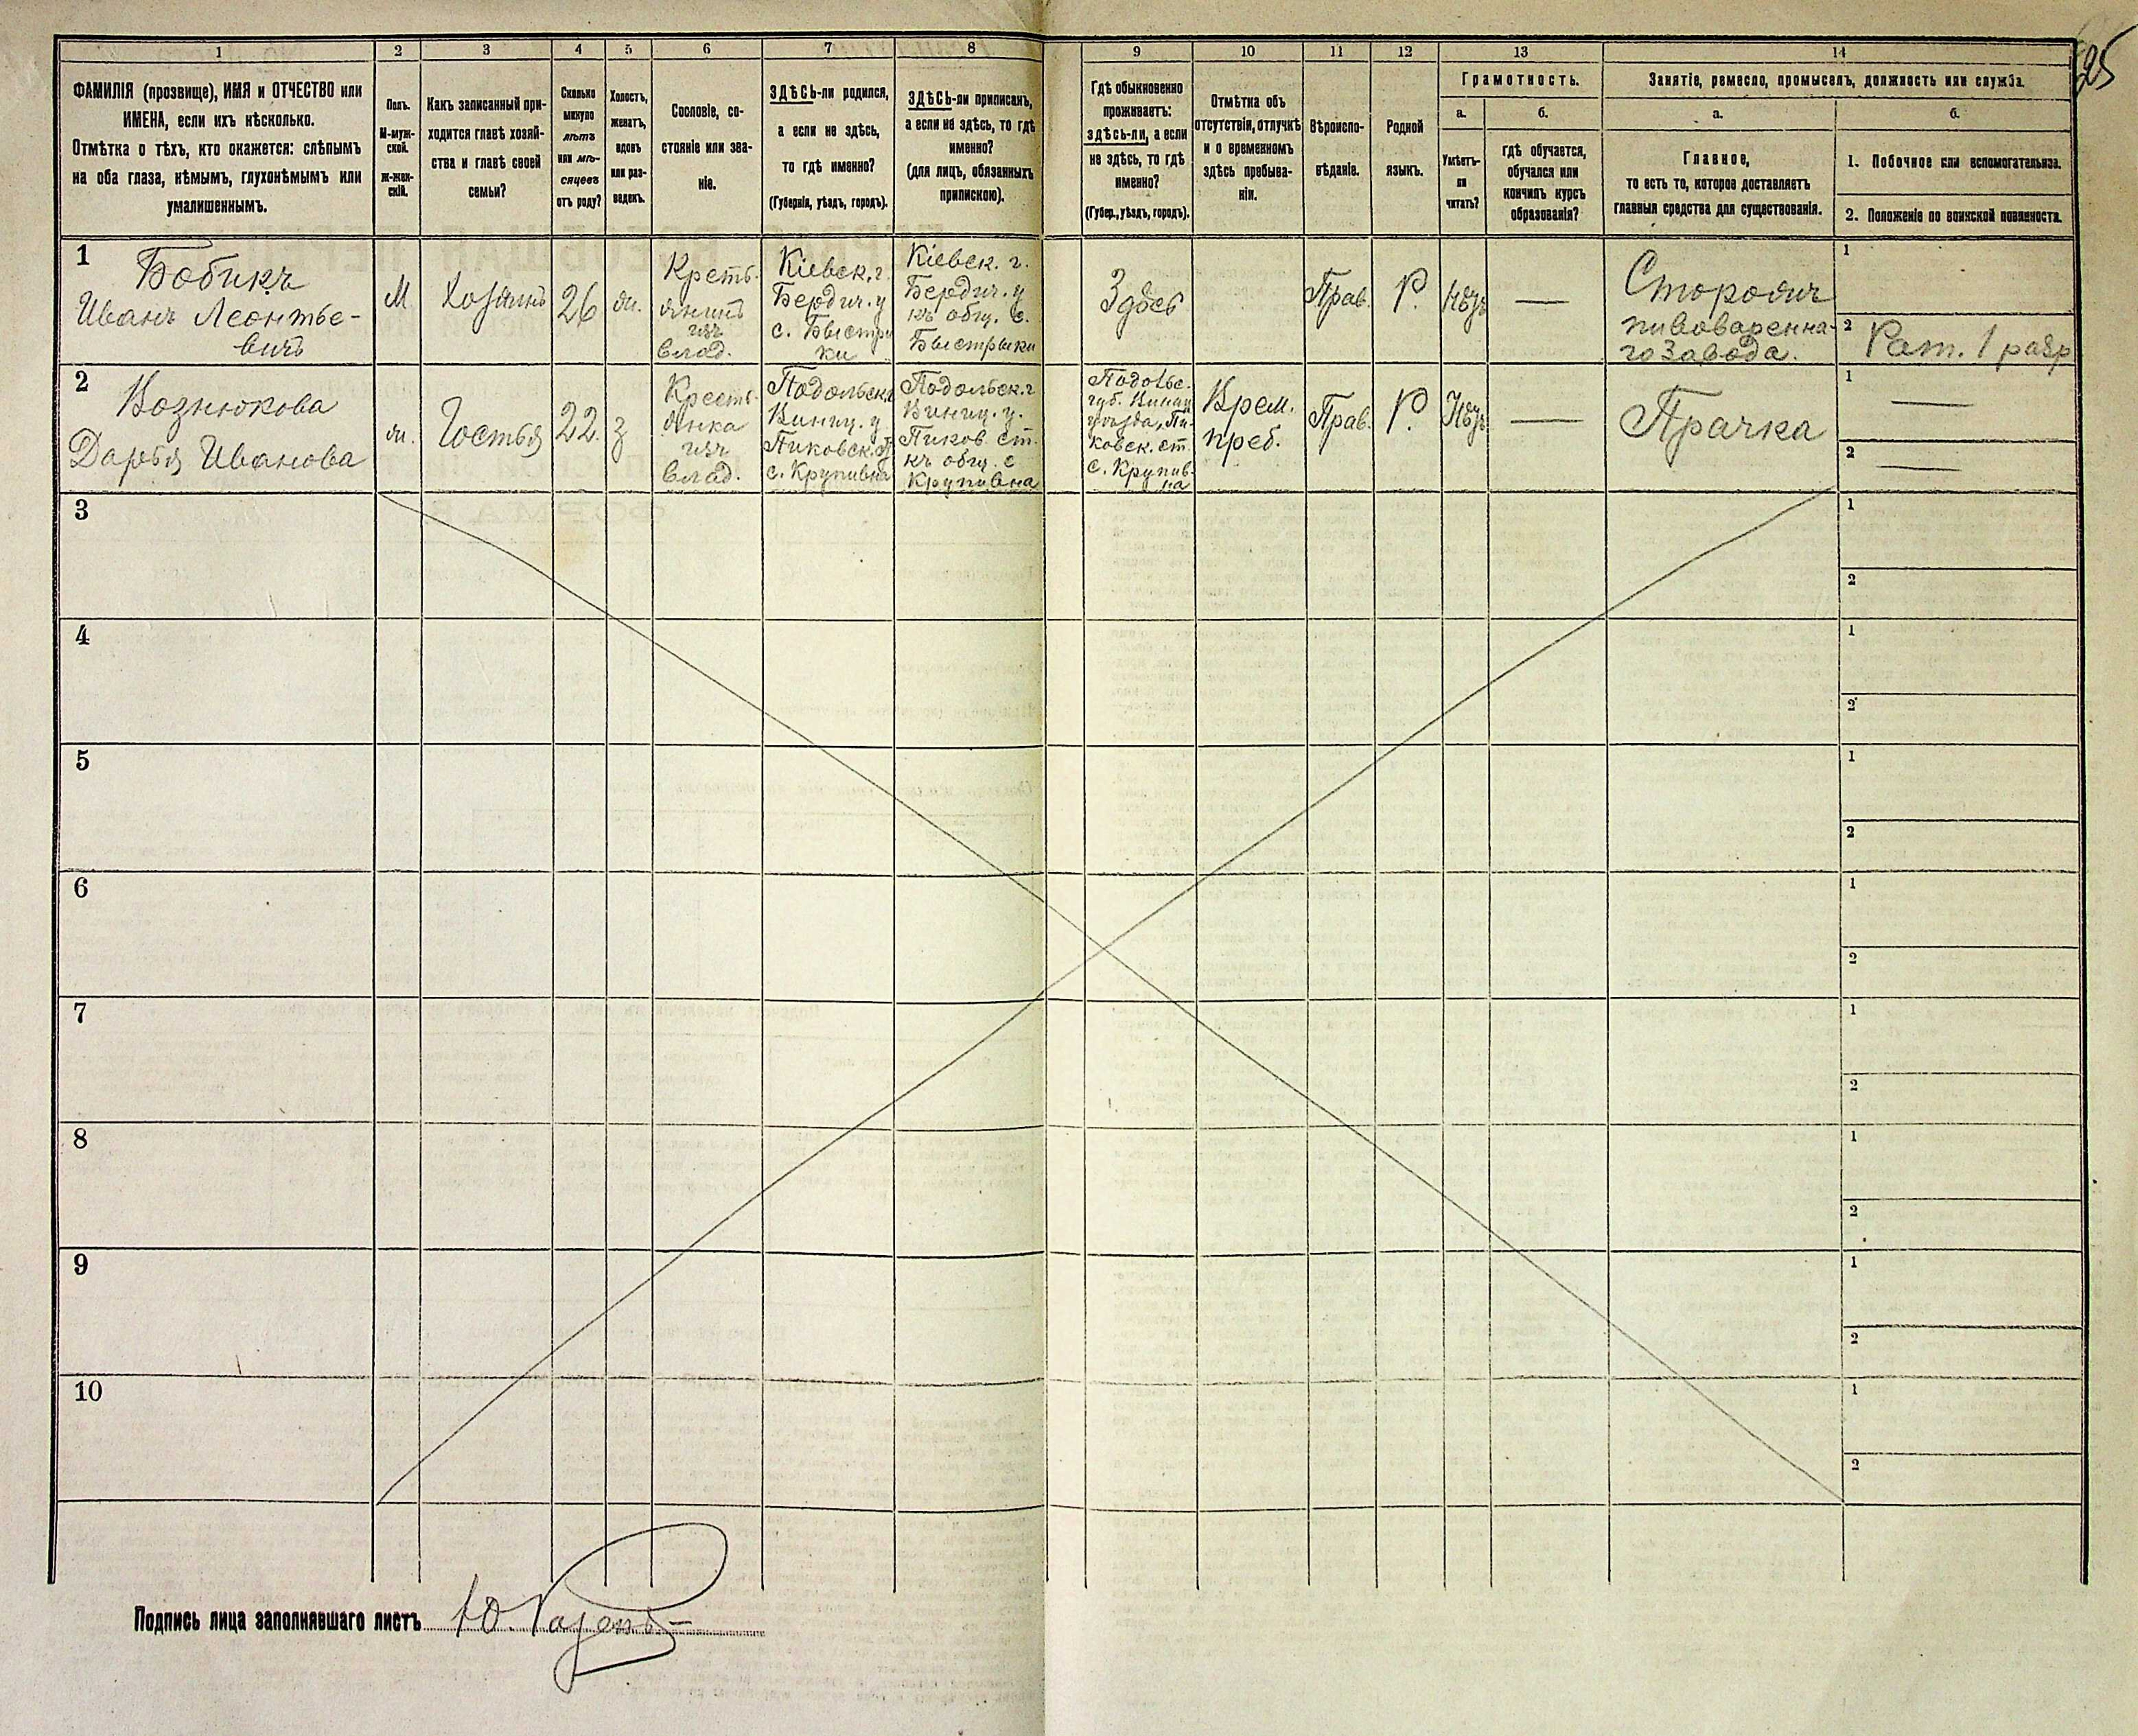 25
1 2 3 4 5 6 7 8 9 10 11 12 13 14
ФАМИЛІЯ (прозвище), ИМЯ и ОТЧЕСТВО или
ИМЕНА, если ихъ нѣсколько.
Отмѣтка о тѣхъ, кто окажется: слѣпымъ
на оба глаза, нѣмымъ, глухонѣмымъ или
умалишеннымъ.
Полъ.
М-муж-
ской.
ж-жен-
скій.
Какъ записанный при-
ходится главѣ хозяй-
ства и главѣ своей
семьи?
Сколько
минуло
лѣтъ
или мѣ-
сяцевъ
отъ роду?
Холостъ,
женатъ,
вдовъ
или раз-
веденъ.
Сословіе, со-
стояніе или зва-
ніе.
ЗДѢСЬ-ли родился,
а если не здѣсь,
то гдѣ именно?
(Губернія, уѣздъ, городъ).
ЗДѢСЬ-ли приписанъ,
а если не здѣсь, то гдѣ
именно?
(для лицъ, обязанныхъ
припискою).
Гдѣ обыкновенно
проживаетъ:
здѣсь-ли, а если
не здѣсь, то гдѣ
именно?
(Губер., уѣздъ, городъ).
Отмѣтка объ
отсутствіи, отлучкѣ
и о временномъ
здѣсь пребыва-
ніи.
Вѣроиспо-
вѣданіе.
Родной
языкъ.
Грамотность.
а.
Умѣетъ-
ли
читать?
б.
гдѣ обучается,
обучался или
кончилъ курсъ
образованія?
Занятіе, ремесло, промыселъ, должность или служба.
а.
Главное,
то есть то, которое доставляетъ
главныя средства для существованія.
б.
1. Побочное или вспомогательное.
2. Положеніе по воинской повинности.
1
Бобикъ
Иванъ Леонтье-
вичъ
М
Хозяинъ
26
ж.
Кресть-
янинъ
изъ
влад.
Кіевск. г.
Бердич. у
с. Быстри
ки
Кіевск. г.
Бердич. у
къ общ. с.
Быстрыки
Здѣсь
Прав.
Р.
Нѣтъ
—
Сторожъ
пивоваренна-
го завода.
1
2 Рат. 1 разр
2
Вознюкова
Дарья Иванова
ж.
Гостья
22.
з
Кресть-
янка
изъ
влад.
Подольск.г
Винниц. у
Пиковск.ст
с. Крупивна
Подольск.г
Винниц. у.
Пиков. ст.
къ общ. с
Крупивна
Подольс.
губ. Винниц
уѣзда, Пи-
ковск. ст.
с. Крупив-
на
Врем.
преб.
Прав.
Р.
Нѣтъ
—
Прачка
1 —
2 —
3
1
2
4
1
2
5
1
2
6
1
2
7
1
2
8
1
2
9
1
2
10
1
2
Подпись лица заполнявшаго листъ